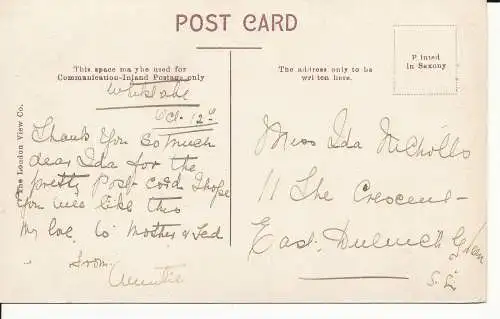 POST CARD
This space may be used for
Communication-Inland Postage only
The address only to be
written here.
Printed
in Saxony
The London View Co.
Oct. 12th
Thank You so much
dear Ida for the
pretty Post-card I hope
You will like this
My love to Mother & Ted
from
Auntie
Miss Ida Nicholls
11 The Crescent
East Dulwich
S.E.